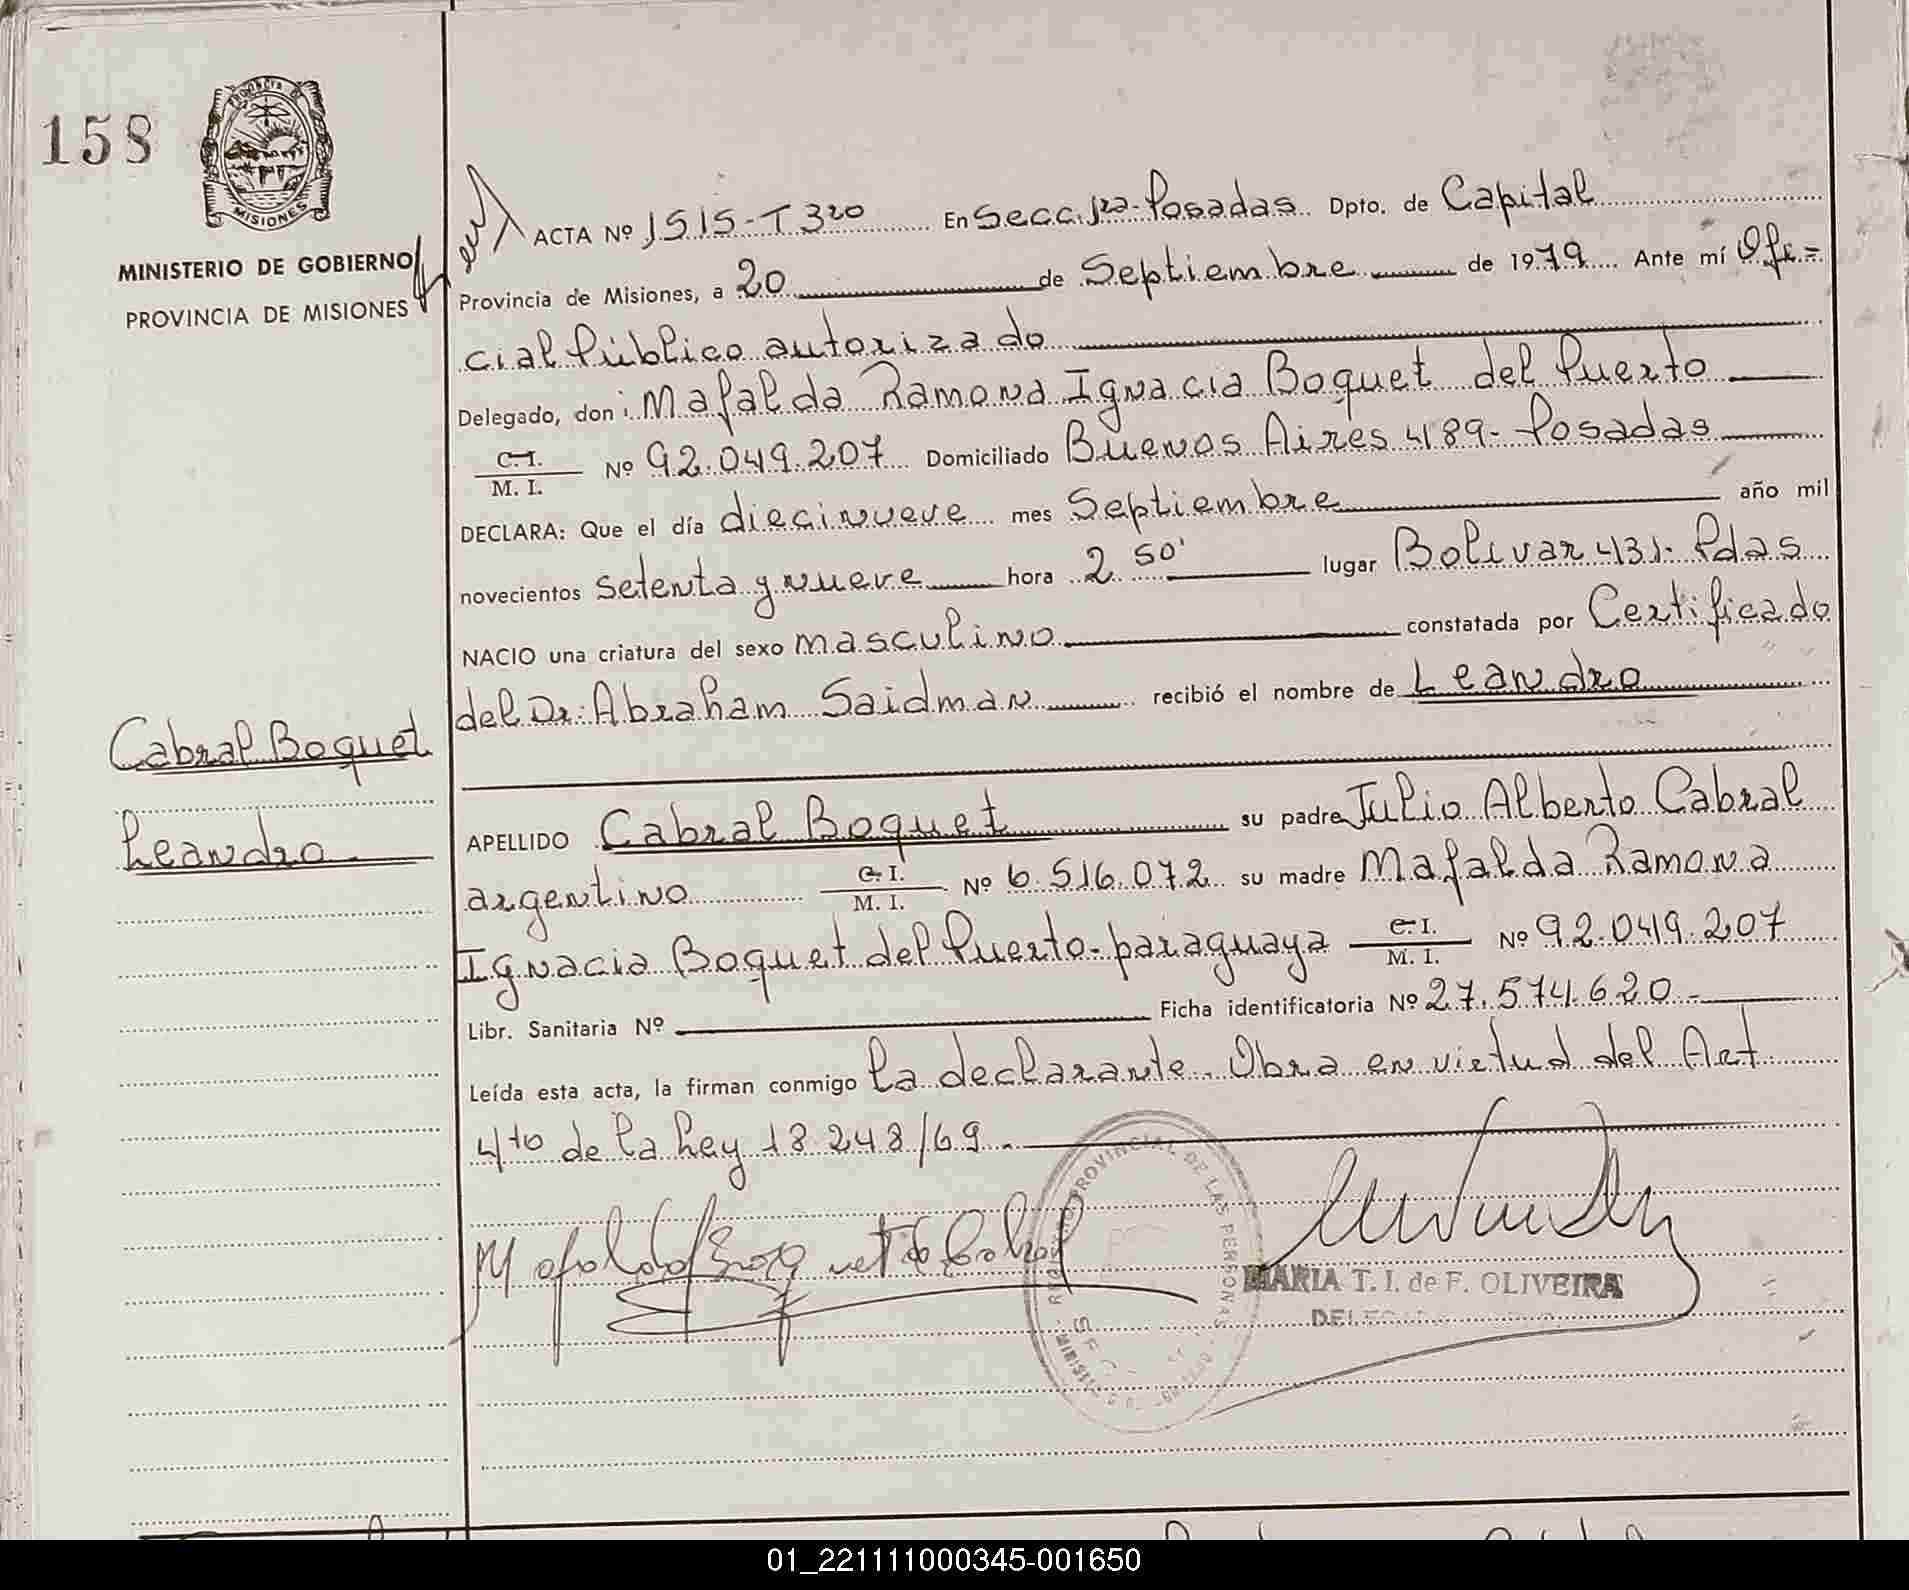 158
PROVINCIA DE
MISIONES
MINISTERIO DE GOBIERNO
PROVINCIA DE MISIONES
ACTA Nº 1515-T3ro En Secc. 1ra-Posadas Dpto. de Capital
Provincia de Misiones, a 20 de Septiembre de 1979 Ante mí Ofi=
cial Público autorizado
Delegado, don: Mafalda Ramona Ignacia Boquet del Puerto
C.I. / M. I. Nº 92.049.207 Domiciliado Buenos Aires 4189- Posadas
DECLARA: Que el día diecinueve mes Septiembre año mil
novecientos setenta y nueve hora 2 50' lugar Bolivar 431- Pdas
NACIO una criatura del sexo masculino constatada por Certificado
del Dr. Abraham Saidman recibió el nombre de Leandro
Cabral Boquet
Leandro
APELLIDO Cabral Boquet su padre Julio Alberto Cabral
argentino C.I. / M. I. Nº 6.516.072 su madre Mafalda Ramona
Ignacia Boquet del Puerto-paraguaya C.I. / M. I. Nº 92.049.207
Libr. Sanitaria Nº Ficha identificatoria Nº 27.574.620.-
Leída esta acta, la firman conmigo la declarante. Obra en virtud del Art
4to de la Ley 18.248/69.-
Mafalda Boquet de Cabral
PROVINCIAL DE LAS PERSONAS
MARIA T. I. de F. OLIVEIRA
01_221111000345-001650